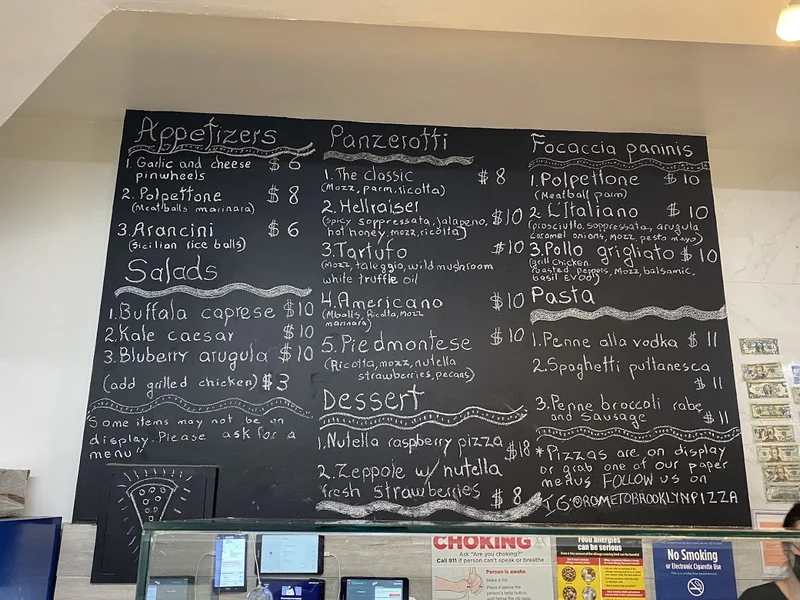 Appetizers
1. Garlic and cheese $6
pinwheels
2. Polpettone $8
(Meatballs marinara)
3. Arancini $6
(Sicilian rice balls)
Salads
1. Buffala caprese $10
2. Kale caesar $10
3. Bluberry arugula $10
(add grilled chicken) $3
Some items may not be on
display. Please ask for a
menu"
Panzerotti
1. The classic $8
(Mozz, parm, ricotta)
2. Hellraiser $10
(Spicy soppressata, jalapeno,
hot honey, mozz, ricotta)
3. Tartufo $10
(Mozz, taleggio, wild mushroom
white truffle oil
4. Americano $10
(Mballs, Ricotta, Mozz
marinara)
5. Piedmontese $10
(Ricotta, mozz, nutella
strawberries, pecans)
Dessert
1. Nutella raspberry pizza $18
2. Zeppole w/ nutella
fresh strawberries $8
Focaccia paninis
1. Polpettone $10
(Meatball parm)
2. L'Italiano $10
(prosciutto, soppressata, arugula
caramel onions, mozz, pesto mayo)
3. Pollo grigliato $10
(grill chicken,
roasted peppers, Mozz, balsamic,
basil EVOO)
Pasta
1. Penne alla vodka $11
2. Spaghetti puttanesca
$11
3. Penne broccoli rabe
and Sausage $11
*Pizzas are on display
or grab one of our paper
menus FOLLOW us on
IG:@ROMETOBROOKLYNPIZZA
CHOKING
Ask "Are you choking?"
Call 911 if person can't speak or breathe
Person is awake
Make a fist.
Place it above the
person's belly button,
Food allergies
can be serious
No Smoking
or Electronic Cigarette Use